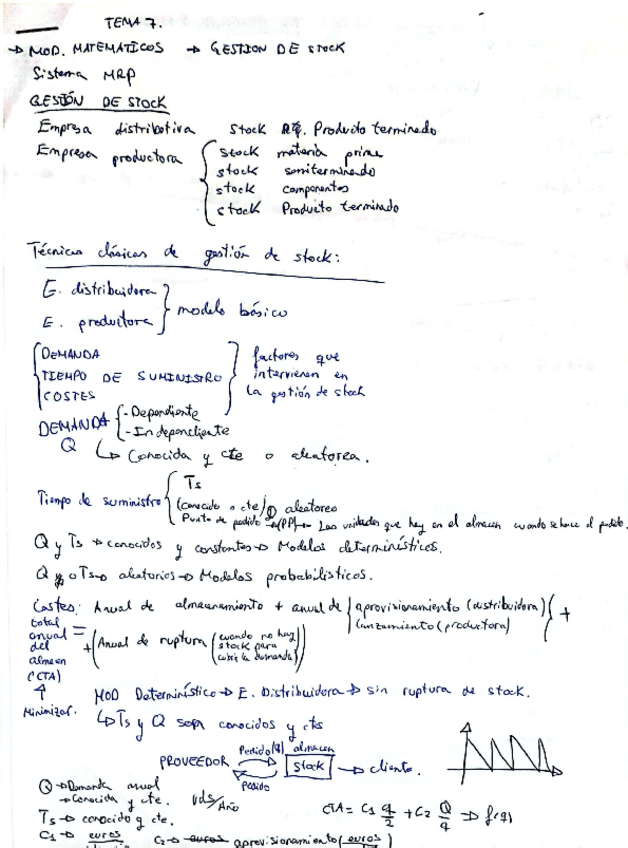 TEMA 7.
→ MOD. MATEMATICOS → GESTION DE STOCK
Sistema MRP
GESTIÓN DE STOCK
Empresa distributiva stock Producto terminado
Empresa productora { stock materia prima
stock semiterminado
stock componentes
stock Producto terminado
Técnicas clásicas de gestión de stock:
E. distribuidora
E. productora } modelo básico
{ DEMANDA
TIEMPO DE SUMINISTRO
COSTES } factores que intervienen en la gestión de stock
DEMANDA { - Dependiente
- Independiente
Q ↳ Conocida y cte o aleatorea.
Tiempo de suministro { Ts
(conocido o cte) o aleatoreo
Punto de pedido → (PP) → Las unidades que hay en el almacen cuando se hace el pedido.
Q y Ts → conocidos y constantes → Modelos determinísticos.
Q y/o Ts → aleatorios → Modelos probabilisticos.
Costes: Anual de almacenamiento + anual de { aprovisionamiento (distribuidora)
lanzamiento (productora) } +
total anual del almacen (CTA) = + (Anual de ruptura (cuando no hay stock para cubrir la demanda))
↑
Minimizar.
MOD Determinístico → E. Distribuidora → sin ruptura de stock.
↳ Ts y Q sean conocidos y ctes
PROVEEDOR Pedido (q) almacen stock → cliente.
Pedido
Q → Demanda anual
→ Conocida y cte. uds/Año
Ts → conocido y cte.
CTA = C1 q/2 + C2 Q/q ⇒ f(q)
C1 → euros C2 → euros aprovisionamiento (euros)